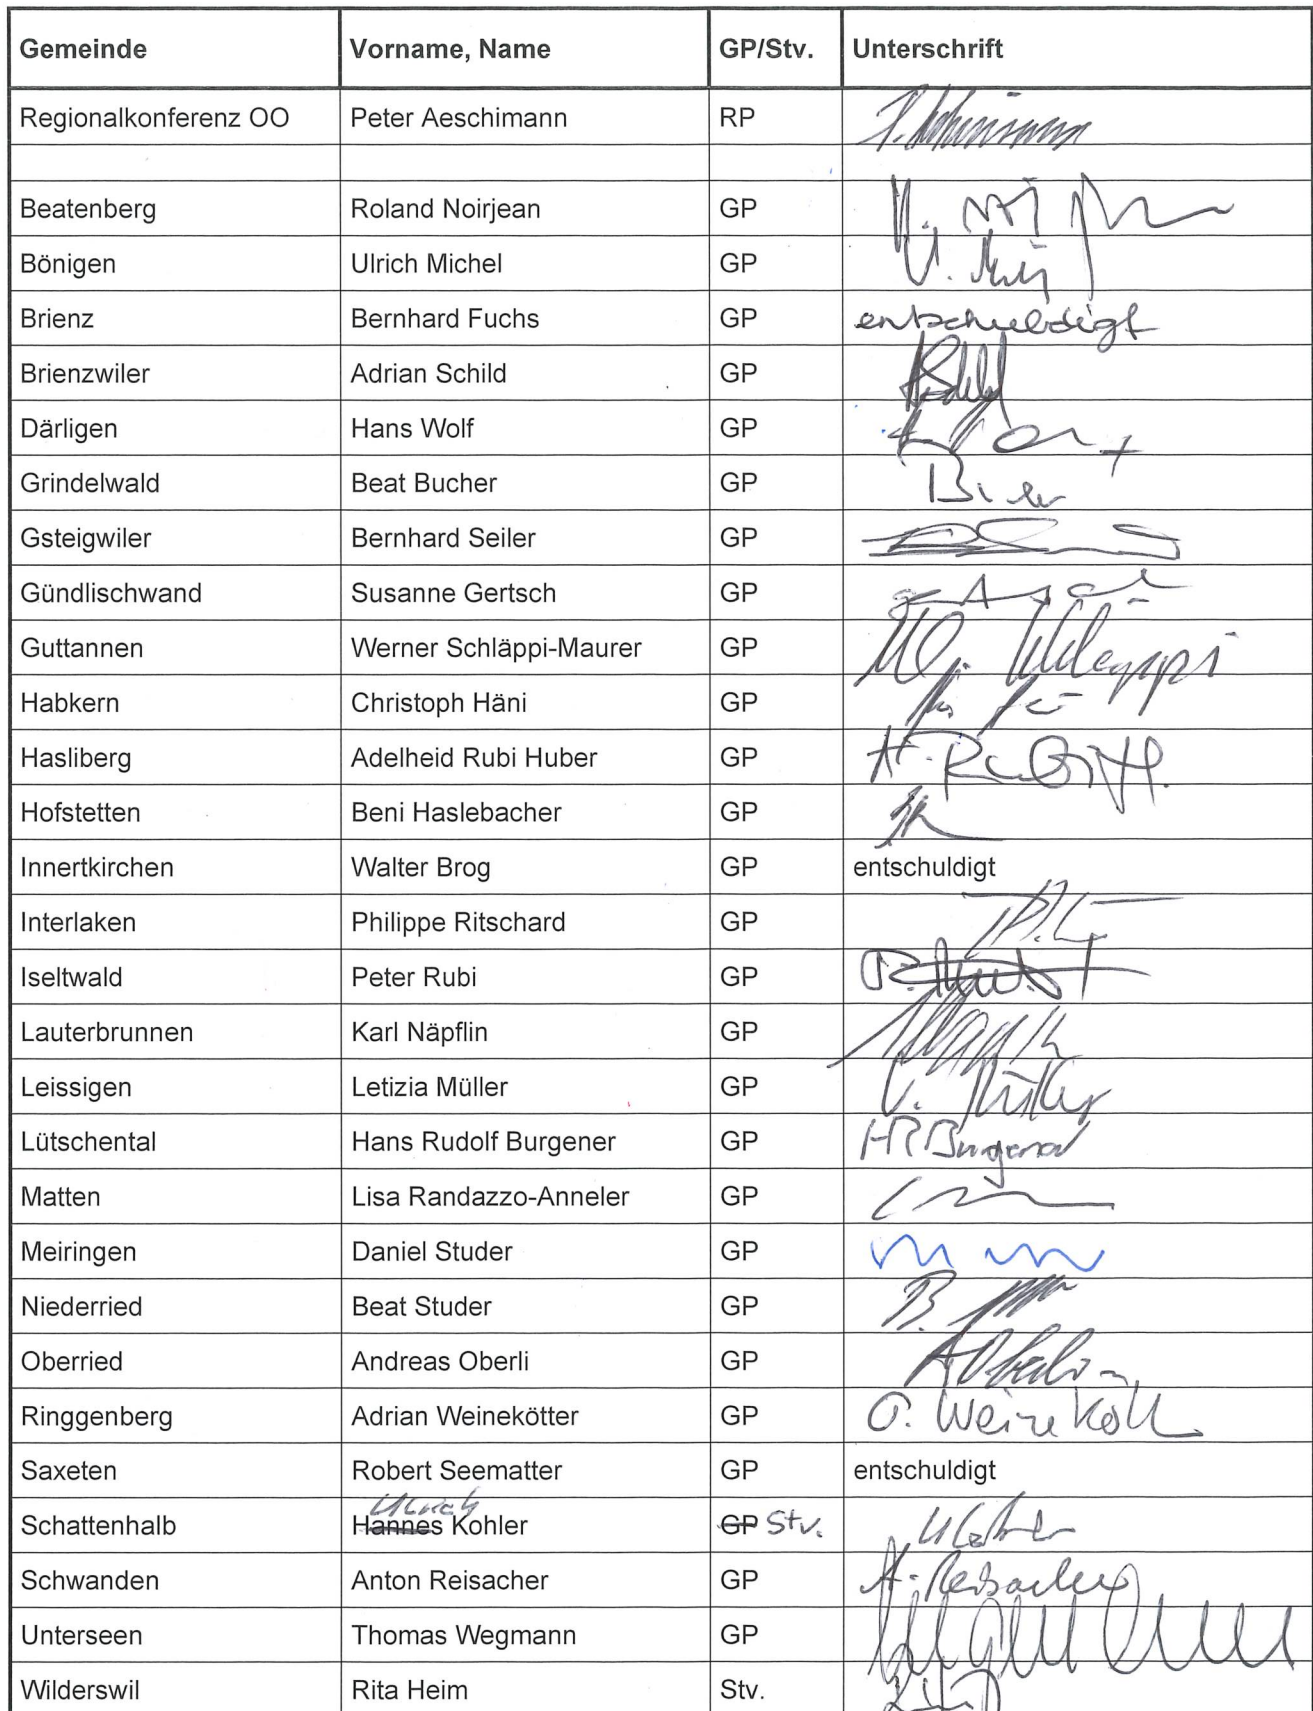 Gemeinde Vorname, Name GP/Stv. Unterschrift
Regionalkonferenz OO Peter Aeschimann RP
Beatenberg Roland Noirjean GP
Bönigen Ulrich Michel GP
Brienz Bernhard Fuchs GP entschuldigt
Brienzwiler Adrian Schild GP
Därligen Hans Wolf GP
Grindelwald Beat Bucher GP
Gsteigwiler Bernhard Seiler GP
Gündlischwand Susanne Gertsch GP
Guttannen Werner Schläppi-Maurer GP W. Schläppi
Habkern Christoph Häni GP
Hasliberg Adelheid Rubi Huber GP A. Rubi H.
Hofstetten Beni Haslebacher GP
Innertkirchen Walter Brog GP entschuldigt
Interlaken Philippe Ritschard GP
Iseltwald Peter Rubi GP
Lauterbrunnen Karl Näpflin GP
Leissigen Letizia Müller GP L. Müller
Lütschental Hans Rudolf Burgener GP HR Burgener
Matten Lisa Randazzo-Anneler GP
Meiringen Daniel Studer GP
Niederried Beat Studer GP
Oberried Andreas Oberli GP A Oberli
Ringgenberg Adrian Weinekötter GP
Saxeten Robert Seematter GP entschuldigt
Ulrich
Schattenhalb Hannes Kohler GP Stv.
Schwanden Anton Reisacher GP A. Reisacher
Unterseen Thomas Wegmann GP
Wilderswil Rita Heim Stv.